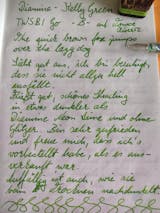 Diamine - Kelly Green
TWSBI Go - B - mit
The quick brown fox jumps
over the lazy dog
Sieht gut aus, ich bin beruhigt,
dass sie nicht allzu hell
ausfällt.
Fließt gut, schönes Shading
in etwas dunkler als
Diamine Neon Lime und ohne
Glitzer. Bin sehr zufrieden
und freue mich, dass ich's
vorbestellt habe, als es aus-
verkauft war.
auch, wie sie
beim Trocknen nachdunkelt